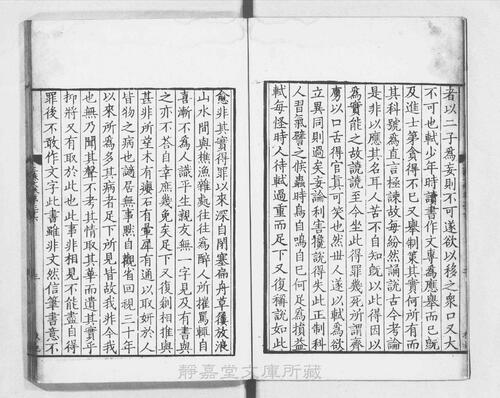 者以二子為妄則不可遂欲以移之衆口又大
不可也軾少年時讀書作文專為應舉而已既
及進士第貪得不已又舉制策其實何所有而
其科號為直言極諫故每紛然誦說古今考論
是非以應其名耳人苦不自知既以此得因以
為實能之故譊譊至今坐此得罪幾死所謂齊
虜以口舌得官真可笑也然世人遂以軾為欲
立異同則過矣妄論利害攙說得失此正制科
人習氣譬之候蟲時鳥自鳴自已何足為損益
軾每怪時人待軾過重而足下又復稱說如此
愈非其實得罪以來深自閉塞扁舟草屨放浪
山水間與樵漁雜處往往為醉人所摧罵輒自
喜漸不為人識平生親友無一字見及有書與
之亦不荅自幸庶幾免矣足下又復創相推與
甚非所望木有癭石有暈犀有通以取妍於人
皆物之病也謫居無事默自觀省回視三十年
以來所為多其病者足下所見皆故我非今我
也無乃聞其聲不考其情取其華而遺其實乎
抑將又有取於此也此事非相見不能盡自得
罪後不敢作文字此書雖非文然信筆書意不
静嘉堂文庫所蔵